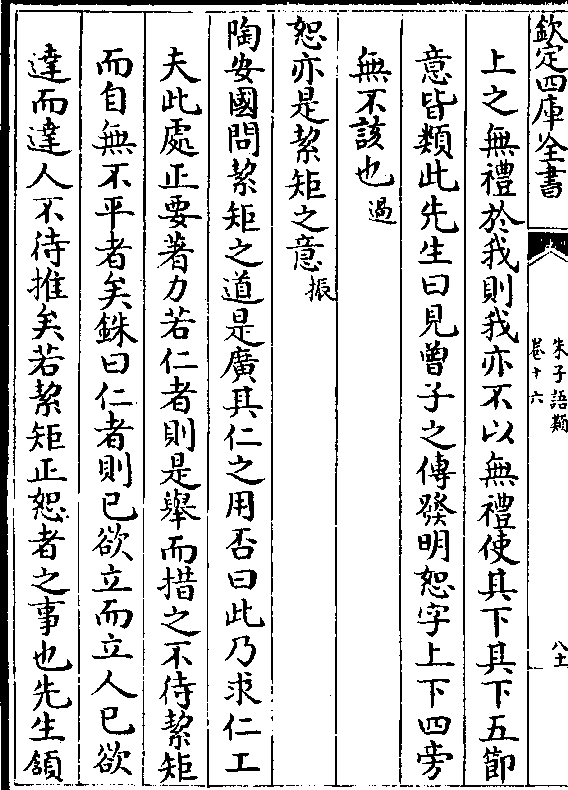 欽定四庫全書
朱子語類
卷十六
八十
上之無禮於我則我亦不以無禮使其下其下五節
意皆類此先生曰見曾子之傳發明恕字上下四旁
無不該也過
恕亦是絜矩之意振
陶安國問絜矩之道是廣其仁之用否曰此乃求仁工
夫此處正要著力若仁者則是舉而措之不待絜矩
而自無不平者矣銖曰仁者則已欲立而立人已欲
達而達人不待推矣若絜矩正恕者之事也先生頷